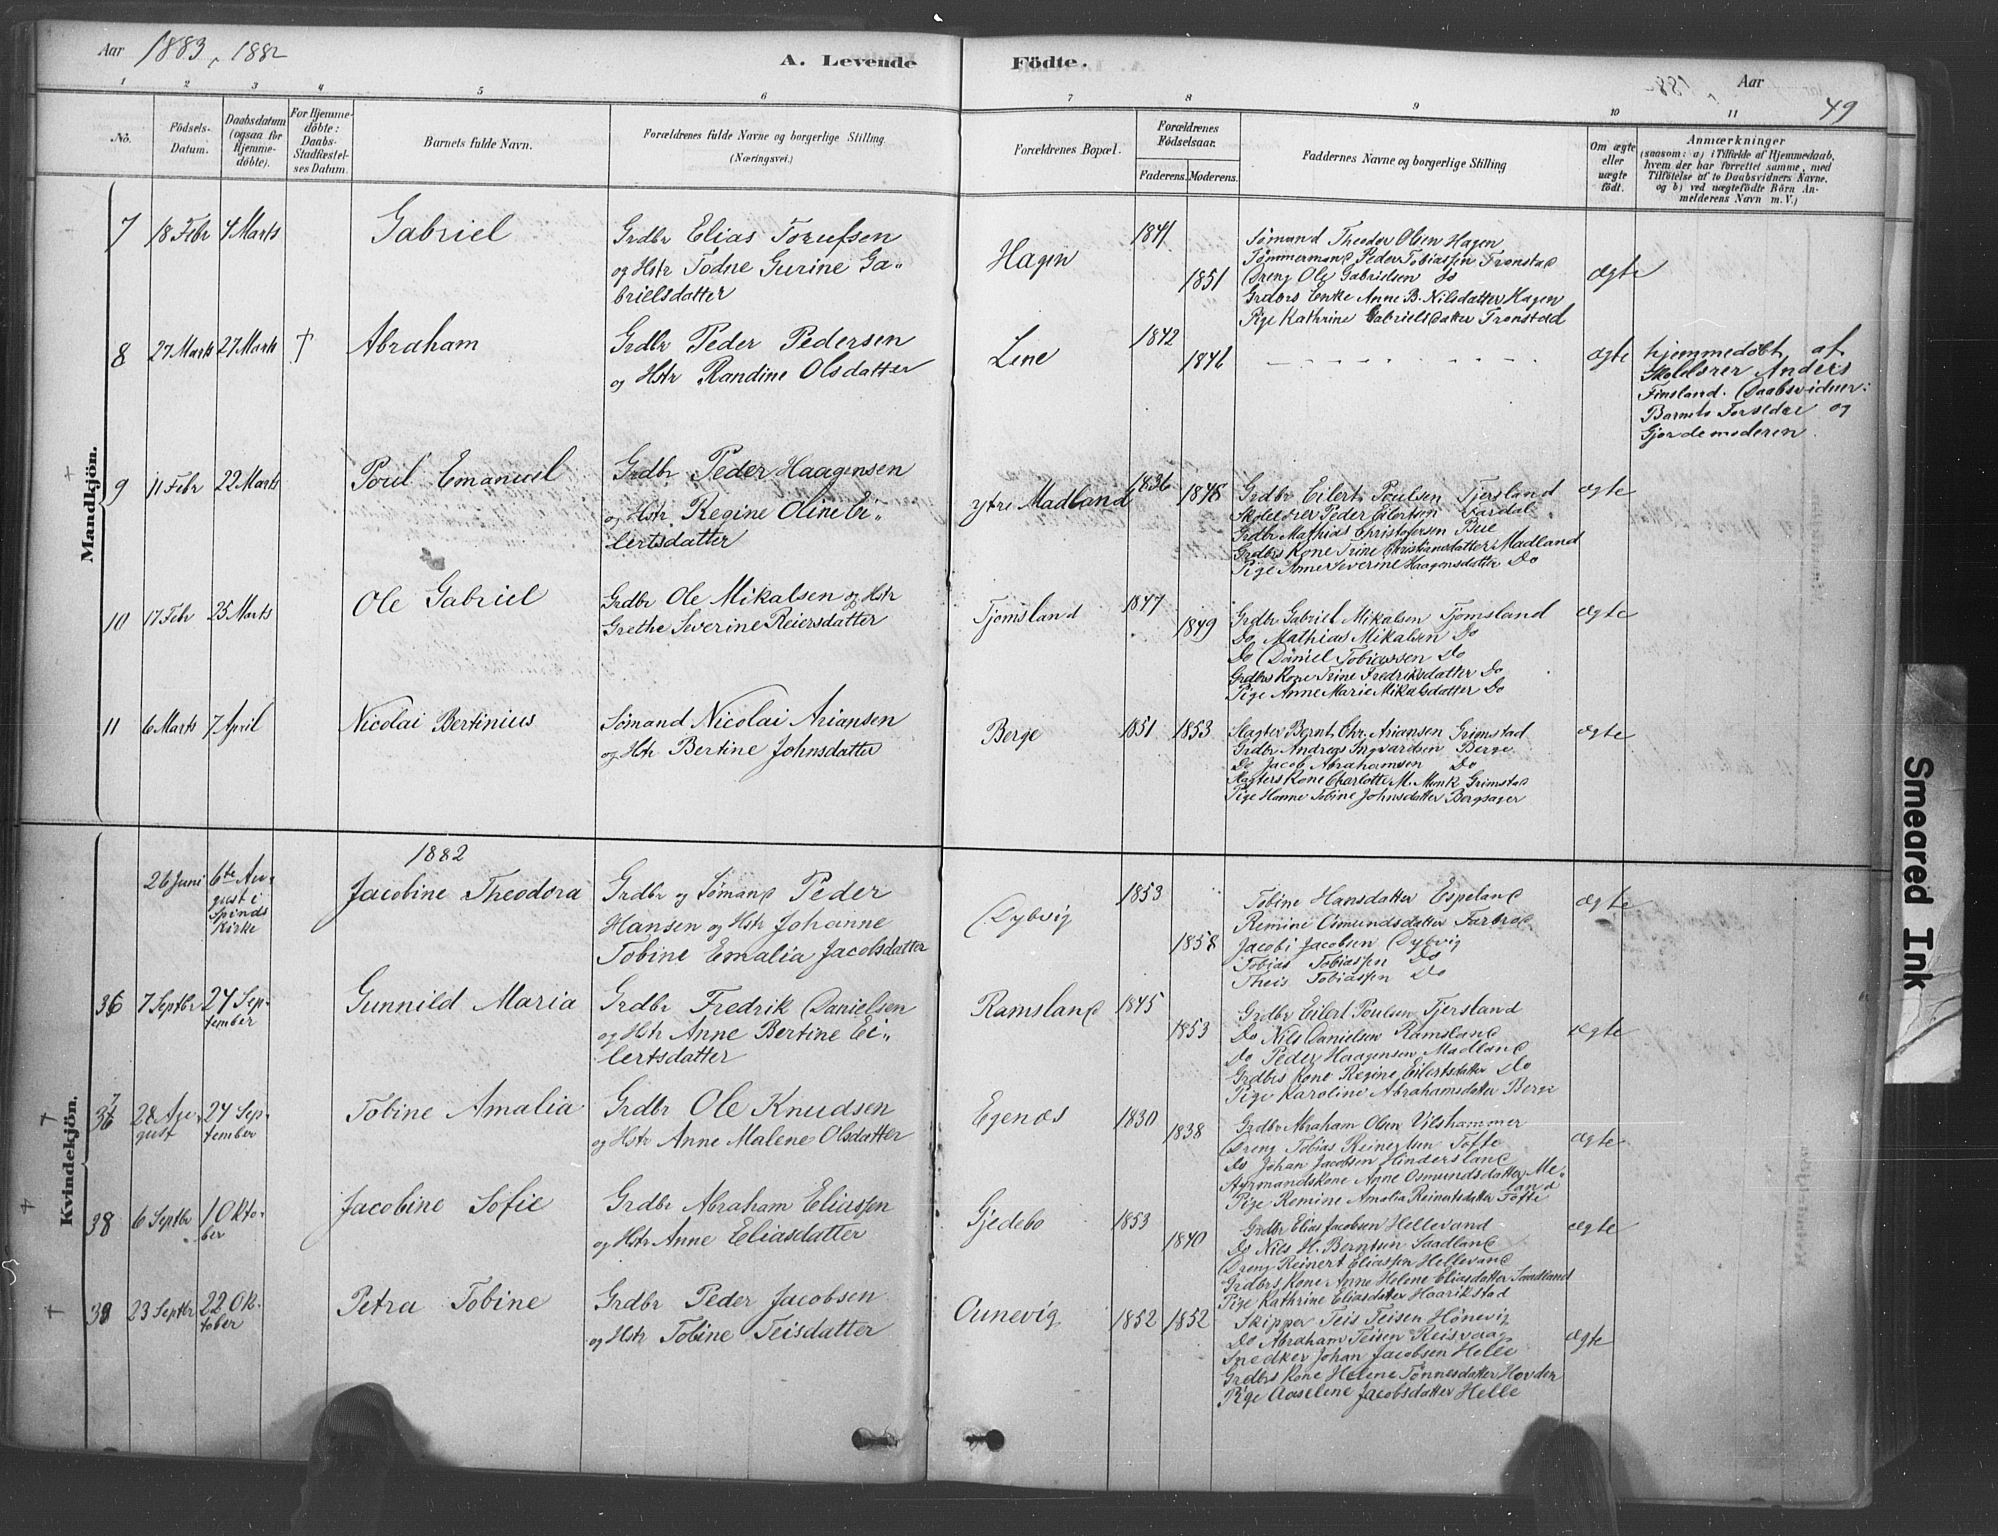 Aar 1883, 1882
A. Levende Födte.
Aar
49
1 2 3 4 5 6 7 8 9 10 11
No.
Födsels-
Datum.
Daabsdatum
(ogsaa for
Hjemme-
döbte).
For Hjemme-
döbte:
Daabs-
Stadfæstel-
ses Datum.
Barnets fulde Navn.
Forældrenes fulde Navne og borgerlige Stilling
(Næringsvei.)
Forældrenes Bopæl.
Forældrenes
Födselsaar.
Faderens. Moderens.
Faddernes Navne og borgerlige Stilling
Om ægte
eller
uægte
født.
Anmærkninger
(saasom: a) i Tilfælde af Hjemmedaab,
hvem der har forrettet samme, med
Tilföielse af to Daabsvidners Navne,
og b) ved uægtefödte Börn An-
melderens Navn m. V.)
Mandkjön.
7 18 Febr 4 Marts Gabriel
Grdbr Elias
og Hstr Todne Gurine Ga-
brielsdatter
Hagen 1841 1851
Sømand Theodor Olsen Hagen
Tømmermand Peder Tobiassen Tronstad
Dreng Ole Gabrielsen Do
Grdbrs Enke Anne B. Nilsdatter Hagen
Pige Kathrine Gabrielsdatter Tronstad
ægte
8 27 Marts 27 Marts † Abraham
Grdbr Peder Pedersen
og Hstr Randine Olsdatter
Lene 1842 1846
ægte
hjemmedøbt af
Skolelærer Anders
Finsland. Daabsvidner:
Barnets Forældre og
Gjordemoderen.
9 11 Febr 22 Marts Poul Emanuel
Grdbr Peder Haagensen
og Hstr Regine Oline Ei-
lertsdatter
ytre Madland 1836 1848
Grdbr Eilert Poulsen Tjersland
Skolelærer Peder Eilertsen Fardal
Grdbr Mathias Christofersen Bue
Grdbrs Kone Trine Christiansdatter Madland
Pige Anne Severine Haagensdatter Do
ægte
10 17 Febr 25 Marts Ole Gabriel
Grdbr Ole Mikalsen og Hstr
Grethe Severine Reiersdatter
Tjomsland 1847 1849
Grdbr Gabriel Mikalsen Tjomsland
Do Mathias Mikalsen Do
Do Daniel Tobiassen Do
Grdbrs Kone Trine Fredriksdatter Do
Pige Anne Marie Mikalsdatter Do
ægte
11 6 Marts 7 April Nicolai Bertinius
Sømand Nicolai Ariansen
og Hstr Bertine Johnsdatter
Berge 1851 1853
Slagter Bernt Chr. Ariansen Grimstad
Grdbr Andreas Ingvardsen Berge
Do Jacob Abrahamsen Do
Slagters Kone Charlotte M. Munk Grimstad
Pige Hanne Tobine Johnsdatter Bergsager
ægte
Kvindekjön.
1882
26 Juni 6te Au-
gust i
Spinds
Kirke
Jacobine Theodora
Grdbr og Sømand Peder
Hansen og Hstr Johanne
Tobine Emalia Jacobsdatter
Dybvig 1853 1858
Tobine Hansdatter Espeland
Remine Osmundsdatter
Jacobi Jacobsen Dybvig
Tobias Tobiassen Do
Theis Tobiassen Do
ægte
36 7 Septbr 24 Sep-
tember
Gunnild Maria
Grdbr Fredrik Danielsen
og Hstr Anne Bertine Ei-
lertsdatter
Ramsland 1845 1853
Grdbr Eilert Poulsen Tjersland
Do Nils Danielsen Ramsland
Do Peder Haagensen Madland
Grdbrs Kone Regine Eilertsdatter Do
Pige Karoline Abrahamsdatter Berge
ægte
37 28 Au-
gust 24 Sep-
tember
Tobine Amalia
Grdbr Ole Knudsen
og Hstr Anne Malene Olsdatter
Egenæs 1830 1838
Grdbr Abraham Olsen Vilshammer
Dreng Tobias Reinertsen Tofte
Do Johan Jacobsen Hindersland
Styrmandskone Anne Osmundsdatter Me-
land
Pige Remine Amalia Reinertsdatter Tofte
ægte
38 6 Septbr 1 Okto-
ber
Jacobine Sofie
Grdbr Abraham Eliassen
og Hstr Anne Eliasdatter
Gjedebo 1853 1840
Grdbr Elias Jacobsen Hellevand
Do Nils H. Berntsen Saadland
Dreng Reinert Eliassen Hellevand
Grdbrs Kone Anne Helene Eliasdatter Saadland
Pige Kathrine Eliasdatter Haarikstad
ægte
39 23 Septbr 22 Ok-
tober
Petra Tobine
Grdbr Peder Jacobsen
og Hstr Tobine Teisdatter
Ounevig 1852 1852
Skipper Teis Teisen Hönevig
Do Abraham Teisen Reisvaag
Snedker Johan Jacobsen Helle
Grdbrs Kone Helene Tønnesdatter Hovden
Pige Aaselene Jacobsdatter Helle
ægte
Smeared Ink